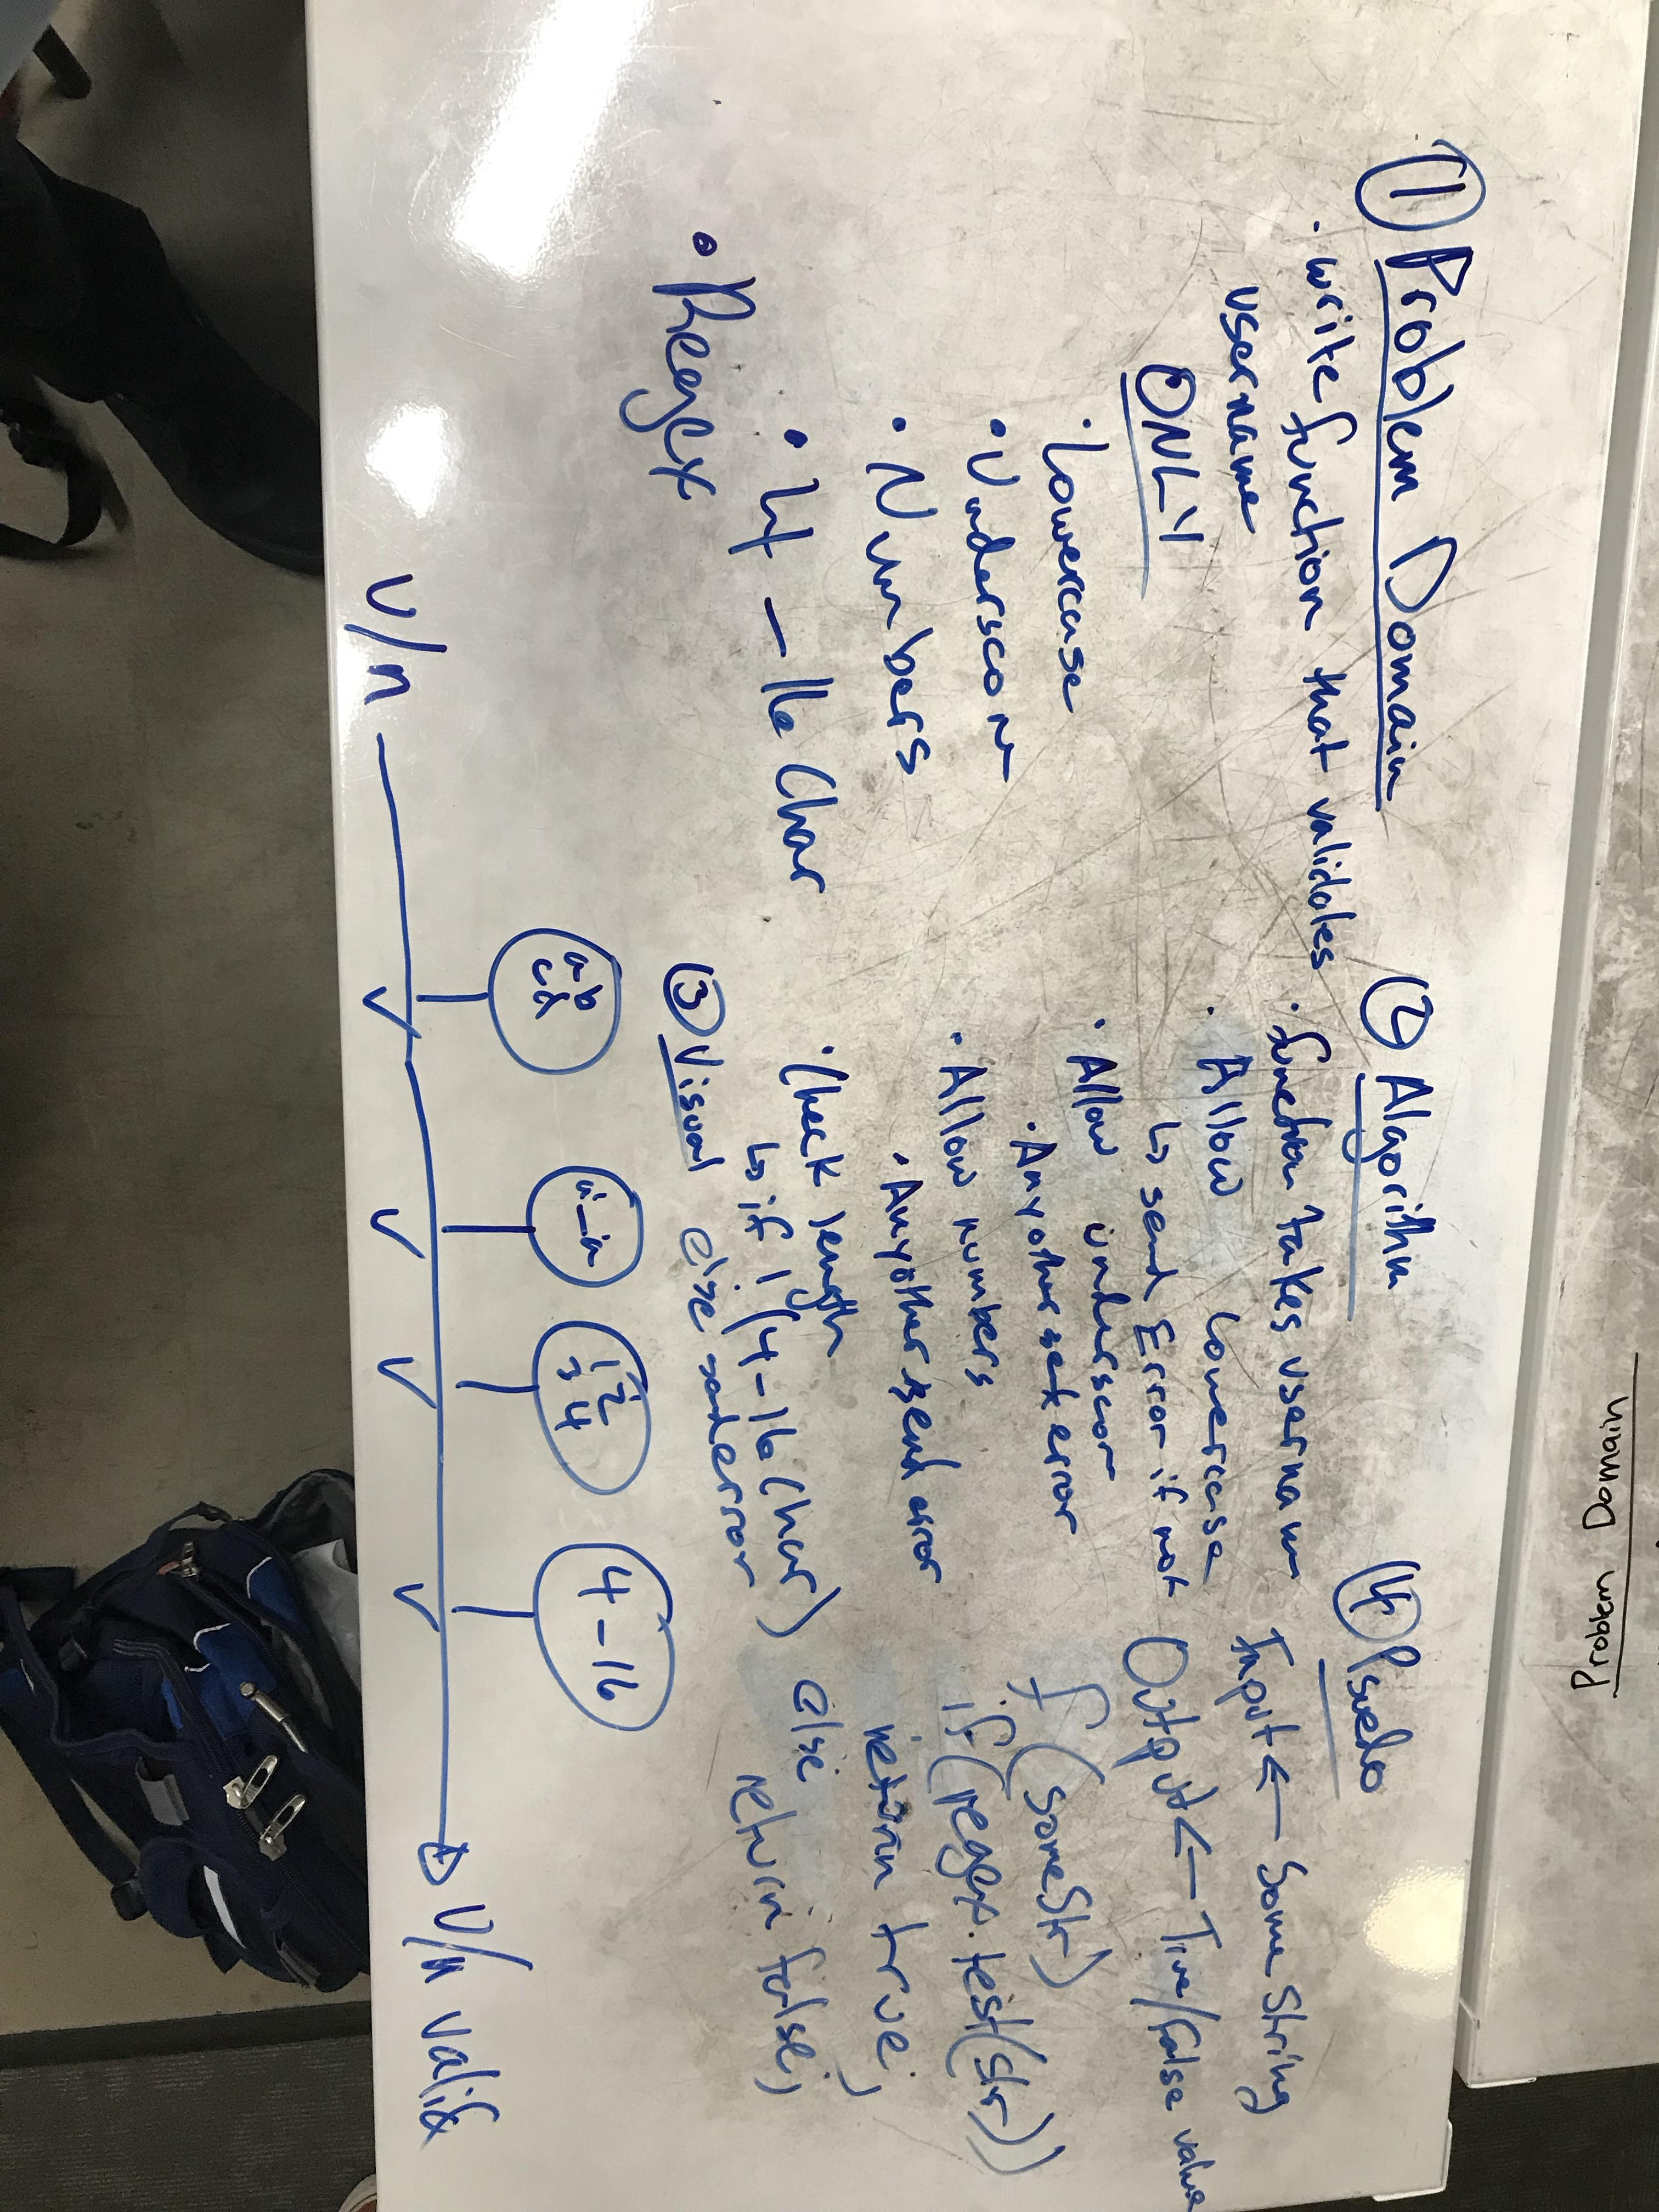 ① Problem Domain
· write function that validates
username
ONLY
· Lowercase
· Underscor
· Numbers
· 4 – 16 Char
· Regex
② Algorithm
· function takes usernam
· Allow lowercase
↳ send Error if not
· Allow underscor
· Any other set error
· Allow numbers
· Any other send error
· Check length
↳ if 1 (4-16 Char)
else send error
③ Visual
ab
cd
a_a
1 2
3 4
4-16
U/n
U/n valid
④ Psuedo
Input ← Some String
Output ← True/False value
f (someStr)
if (regex.test(str))
return true;
else
return false;
Problem Domain